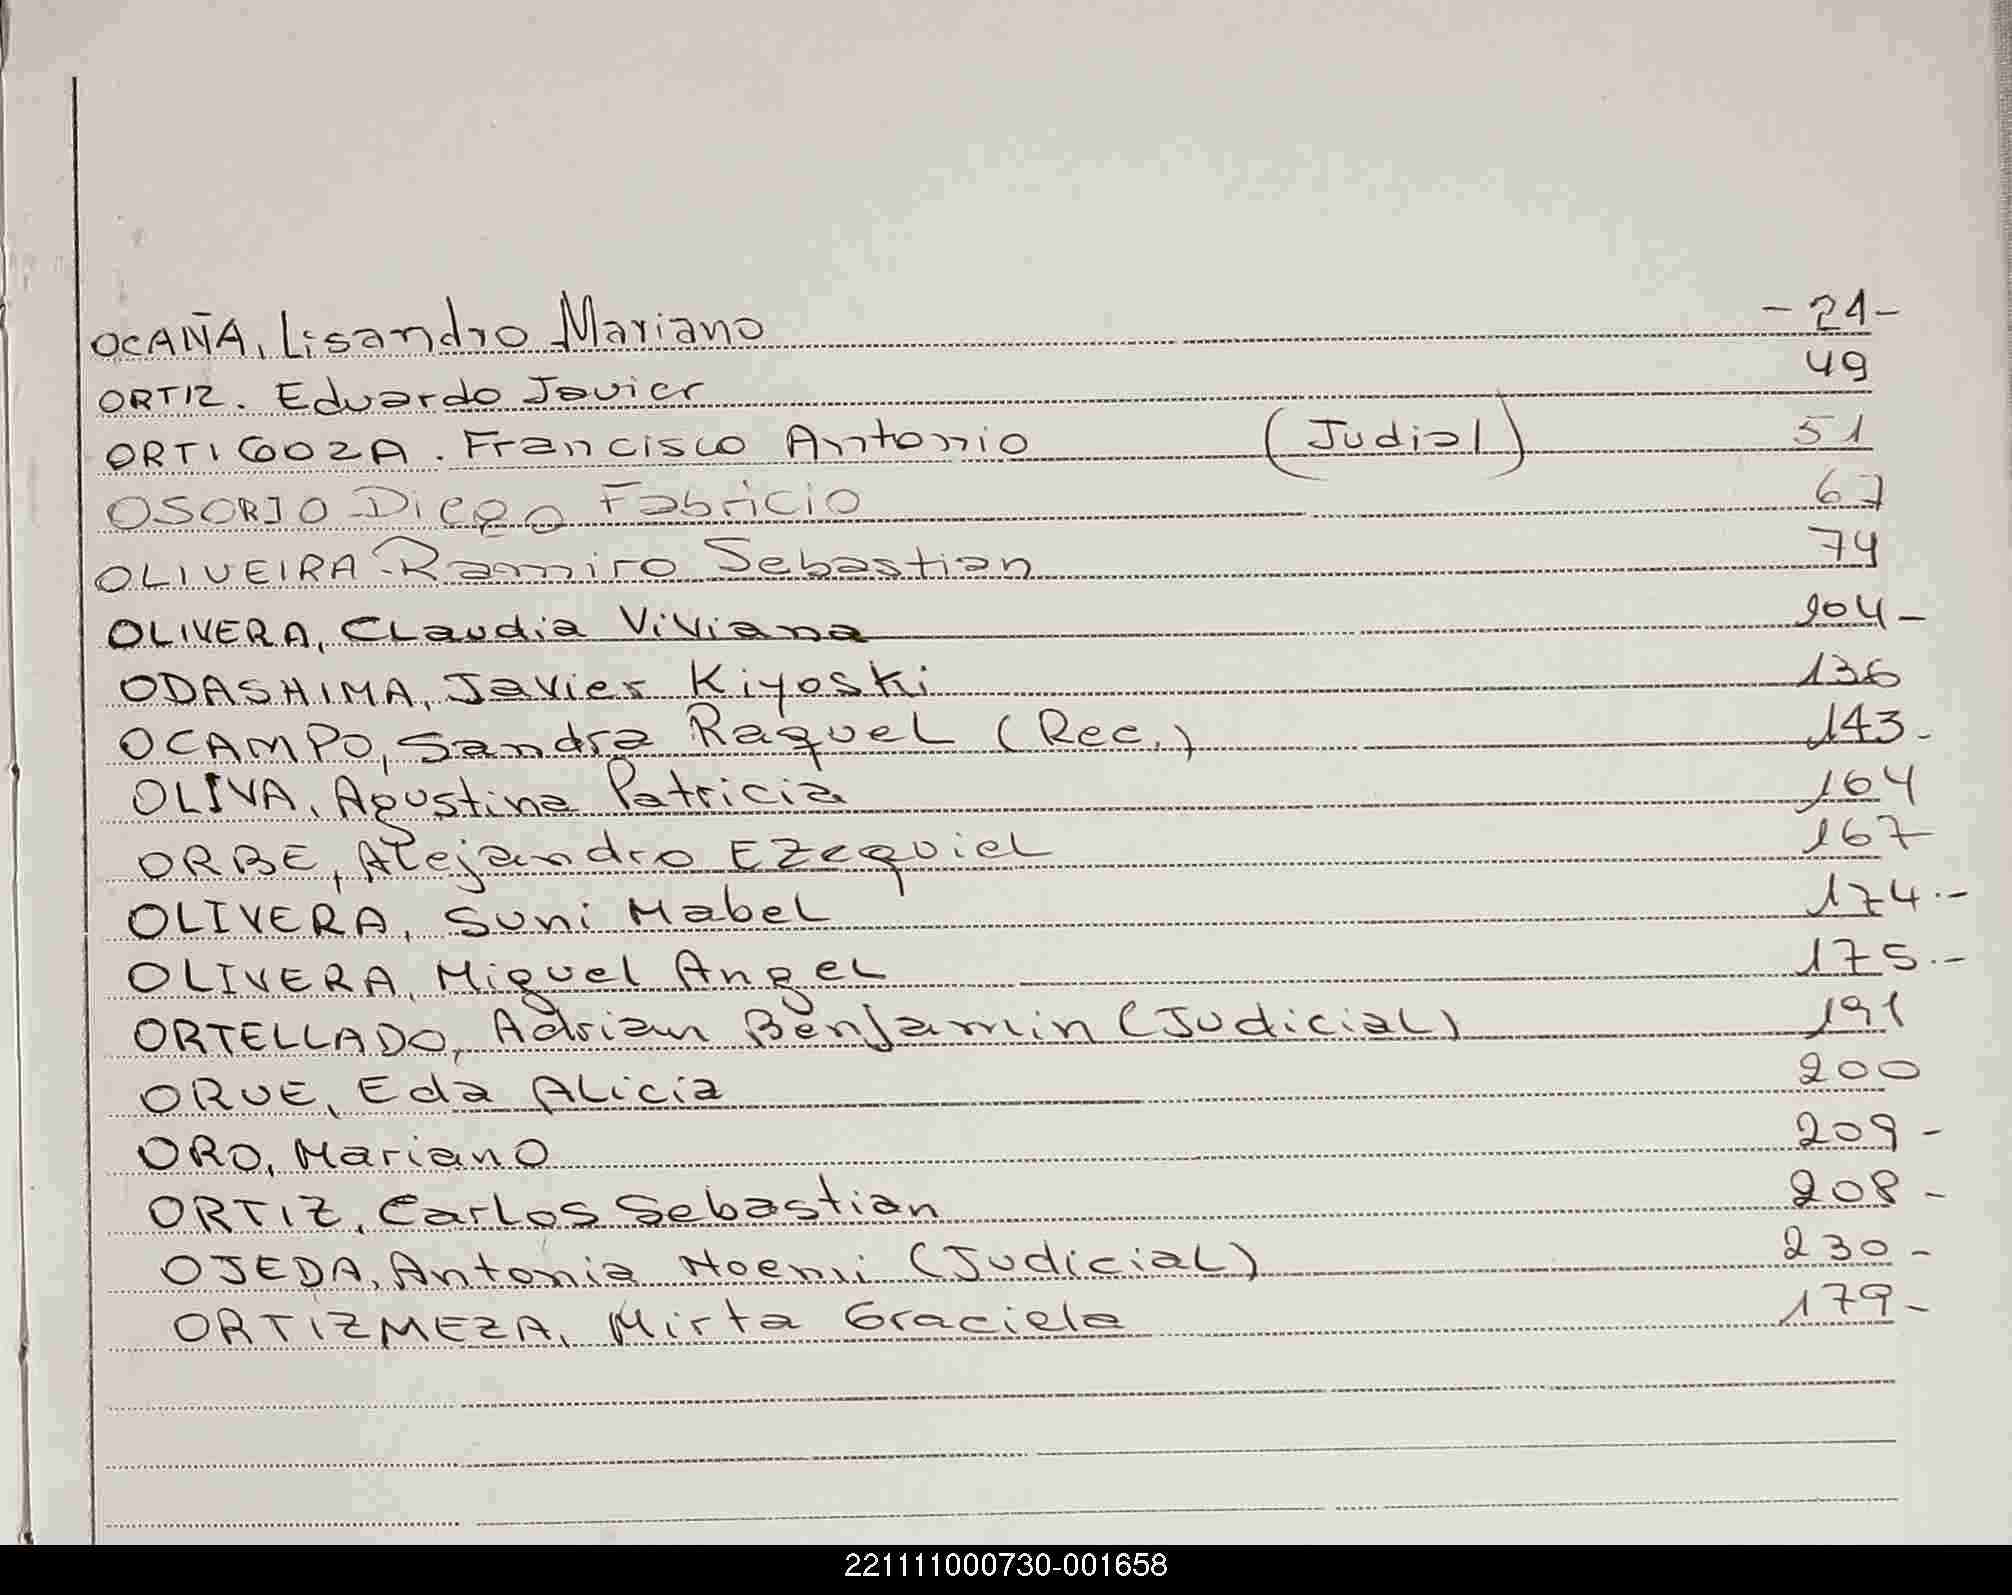 OCAÑA, Lisandro Mariano -21-
ORTIZ. Eduardo Javier 49
ORTIGOZA. Francisco Antonio (Judial) 51
OSORIO Diego Fabricio 67
OLIVEIRA Ramiro Sebastian 74
OLIVERA, Claudia Viviana 104-
ODASHIMA, Javier Kiyoski 136
OCAMPO, Sandra Raquel (Rec.) 143.
OLIVA, Agustina Patricia 164
ORBE, Alejandro Ezequiel 167
OLIVERA, Suni Mabel 174.-
OLIVERA, Miguel Angel 175.-
ORTELLADO, Adrian Benjamin (Judicial) 191
ORUE, Eda Alicia 200
ORO, Mariano 209-
ORTIZ, Carlos Sebastian 208-
OJEDA, Antonia Noemi (Judicial) 230-
ORTIZ MEZA, Mirta Graciela 179-
221111000730-001658